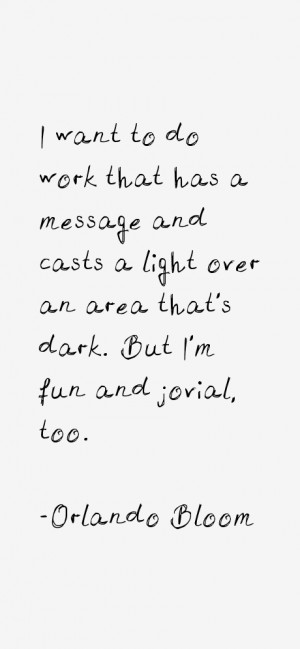 I want to do
work that has a
message and
casts a light over
an area that's
dark. But I'm
fun and jovial,
too.
-Orlando Bloom